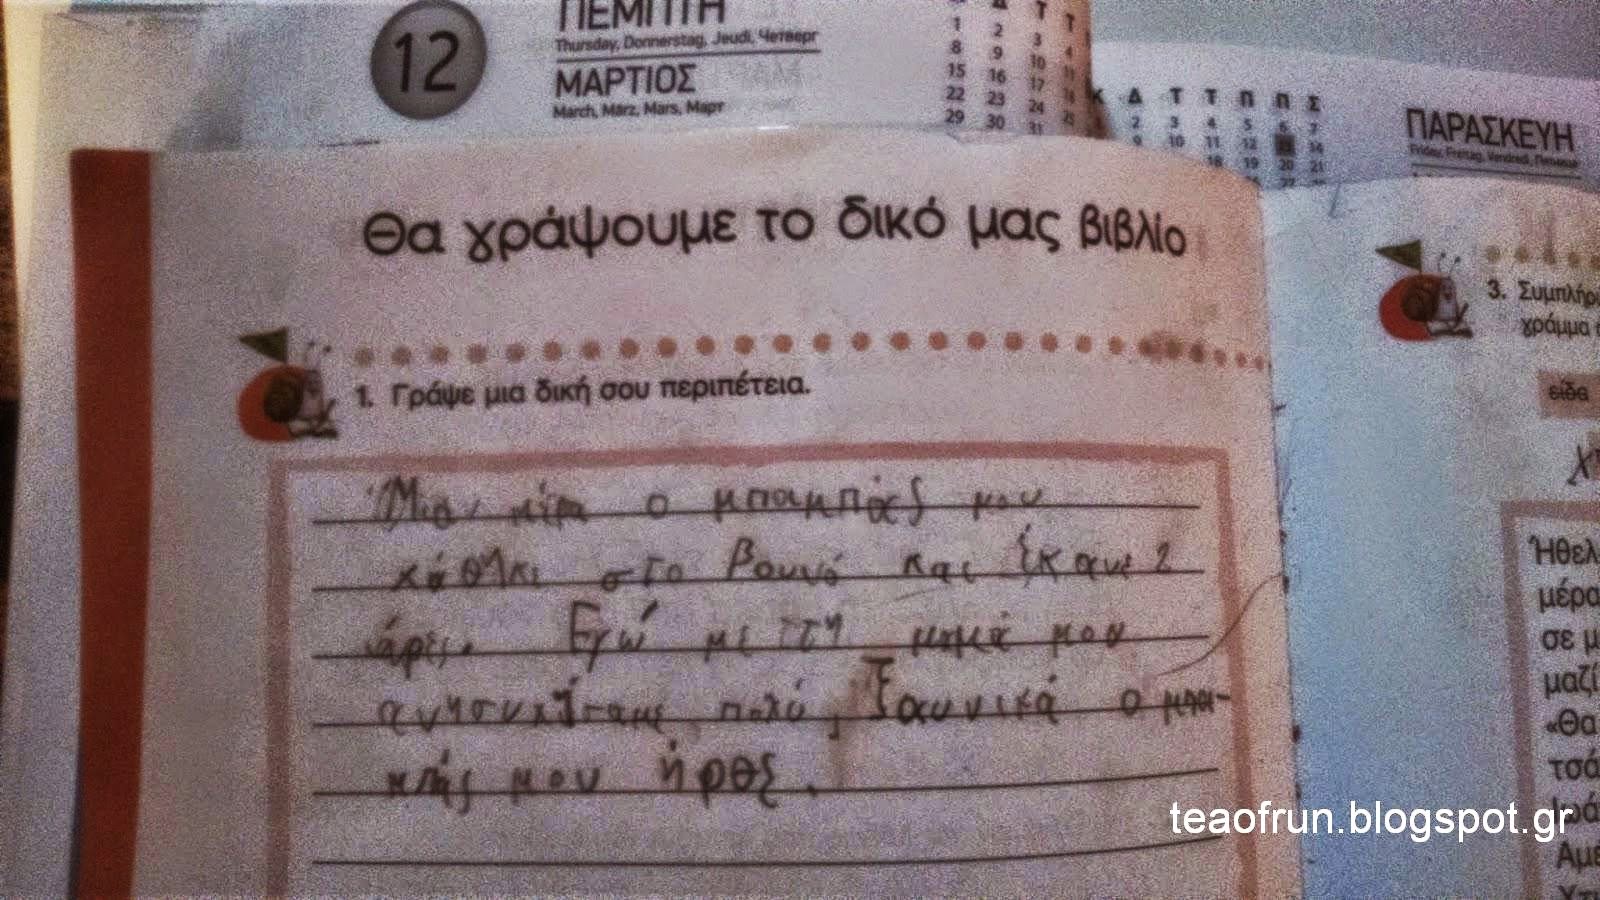 12
ΠΕΜΠΤΗ
Thursday, Donnerstag, Jeudi, Четверг
ΜΑΡΤΙΟΣ
March, März, Mars, Март
Τ Τ
1 2 3 4
8 9 10 11
15 16 17 18
22 23 24 25
29 30 31
Κ Δ Τ Τ Π Π Σ
2 3 4 5 6 7
9 10 11 12 13 14
18 19 20 21
27
ΠΑΡΑΣΚΕΥΗ
Friday, Freitag, Vendredi,
Θα γράψουμε το δικό μας βιβλίο
1. Γράψε μια δική σου περιπέτεια.
Μια μέρα ο μπαμπάς μου
χάθηκε στο βουνό και έκανε 2
ώρες. Εγώ με τη μαμά μου
ανησυχίσαμε πολύ, Ξαυνικά ο μπα-
μπάς μου ήρθε.
3. Συμπλήρ
γράμμα
είδα
Ήθελ
μέρα
σε μ
μαζί
«Θα
τσά
Αμε
teaofrun.blogspot.gr